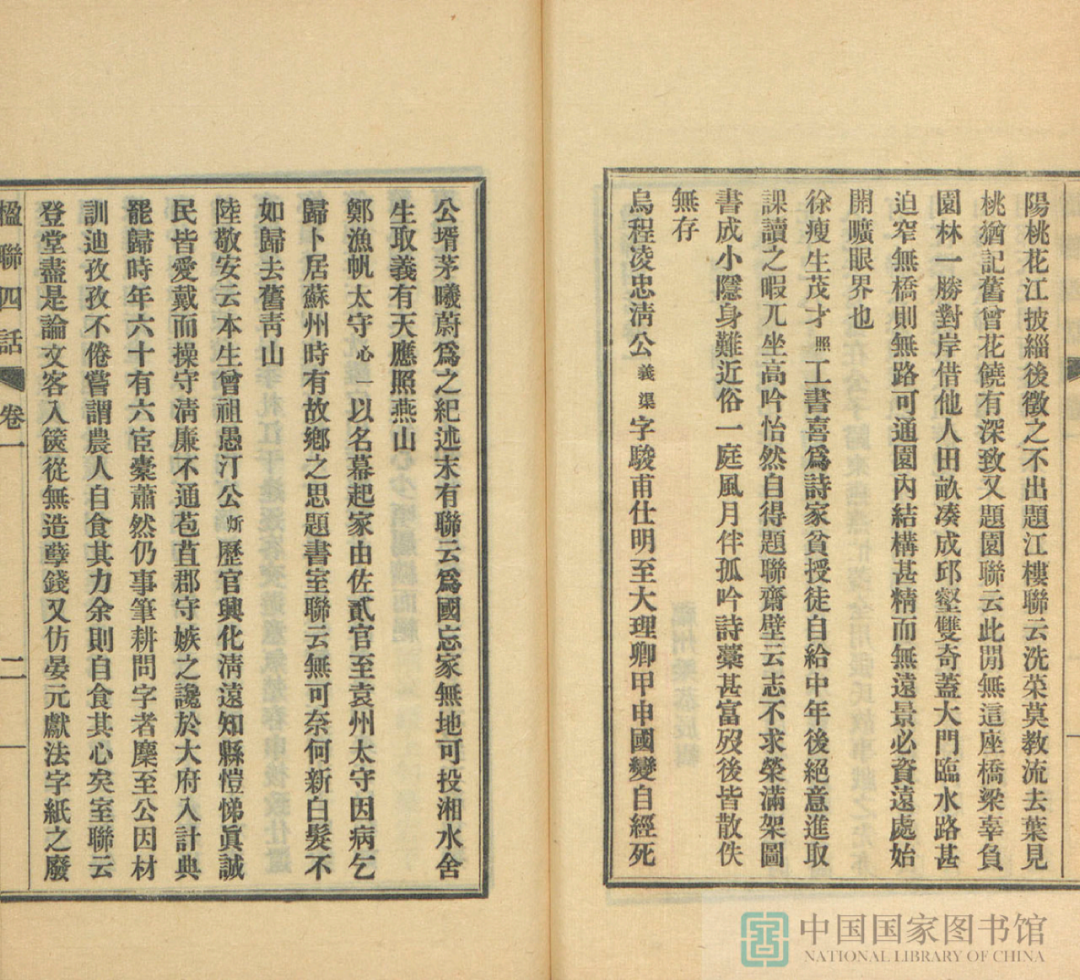 陽桃花江披緇後徵之不出題江樓聯云洗菜莫教流去葉見
桃猶記舊曾花饒有深致又題園聯云此閒無這座橋梁辜負
園林一勝對岸借他人田畝凑成邱壑雙奇蓋大門臨水路甚
迫窄無橋則無路可通園內結構甚精而無遠景必資遠處始
開曠眼界也
徐瘦生茂才照工書喜爲詩家貧授徒自給中年後絕意進取
課讀之暇兀坐高吟怡然自得題聯齋壁云志不求榮滿架圖
書成小隱身難近俗一庭風月伴孤吟詩藁甚富歿後皆散佚
無存
烏程凌忠淸公義渠字駿甫仕明至大理卿甲申國變自經死
公壻茅曦蔚爲之紀述末有聯云爲國忘家無地可投湘水舍
生取義有天應照燕山
鄭漁帆太守心一以名幕起家由佐貳官至袁州太守因病乞
歸卜居蘇州時有故鄉之思題書室聯云無可奈何新白髮不
如歸去舊靑山
陸敬安云本生曾祖愚汀公炘歷官興化淸遠知縣愷悌眞誠
民皆愛戴而操守淸廉不通苞苴郡守嫉之讒於大府入計典
罷歸時年六十有六宦橐蕭然仍事筆耕問字者麇至公因材
訓迪孜孜不倦嘗謂農人自食其力余則自食其心矣室聯云
登堂盡是論文客入篋從無造孽錢又仿晏元獻法字紙之廢
楹聯四話 卷一 二
中国国家图书馆
NATIONAL LIBRARY OF CHINA